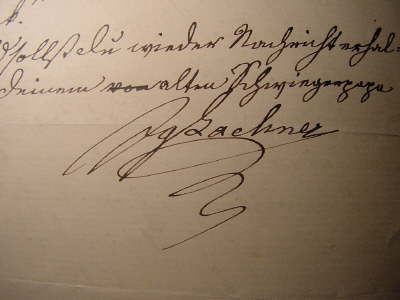 sollst du wieder Nachricht erhal=
deinem von alten Schwiegerpapa
Lachner